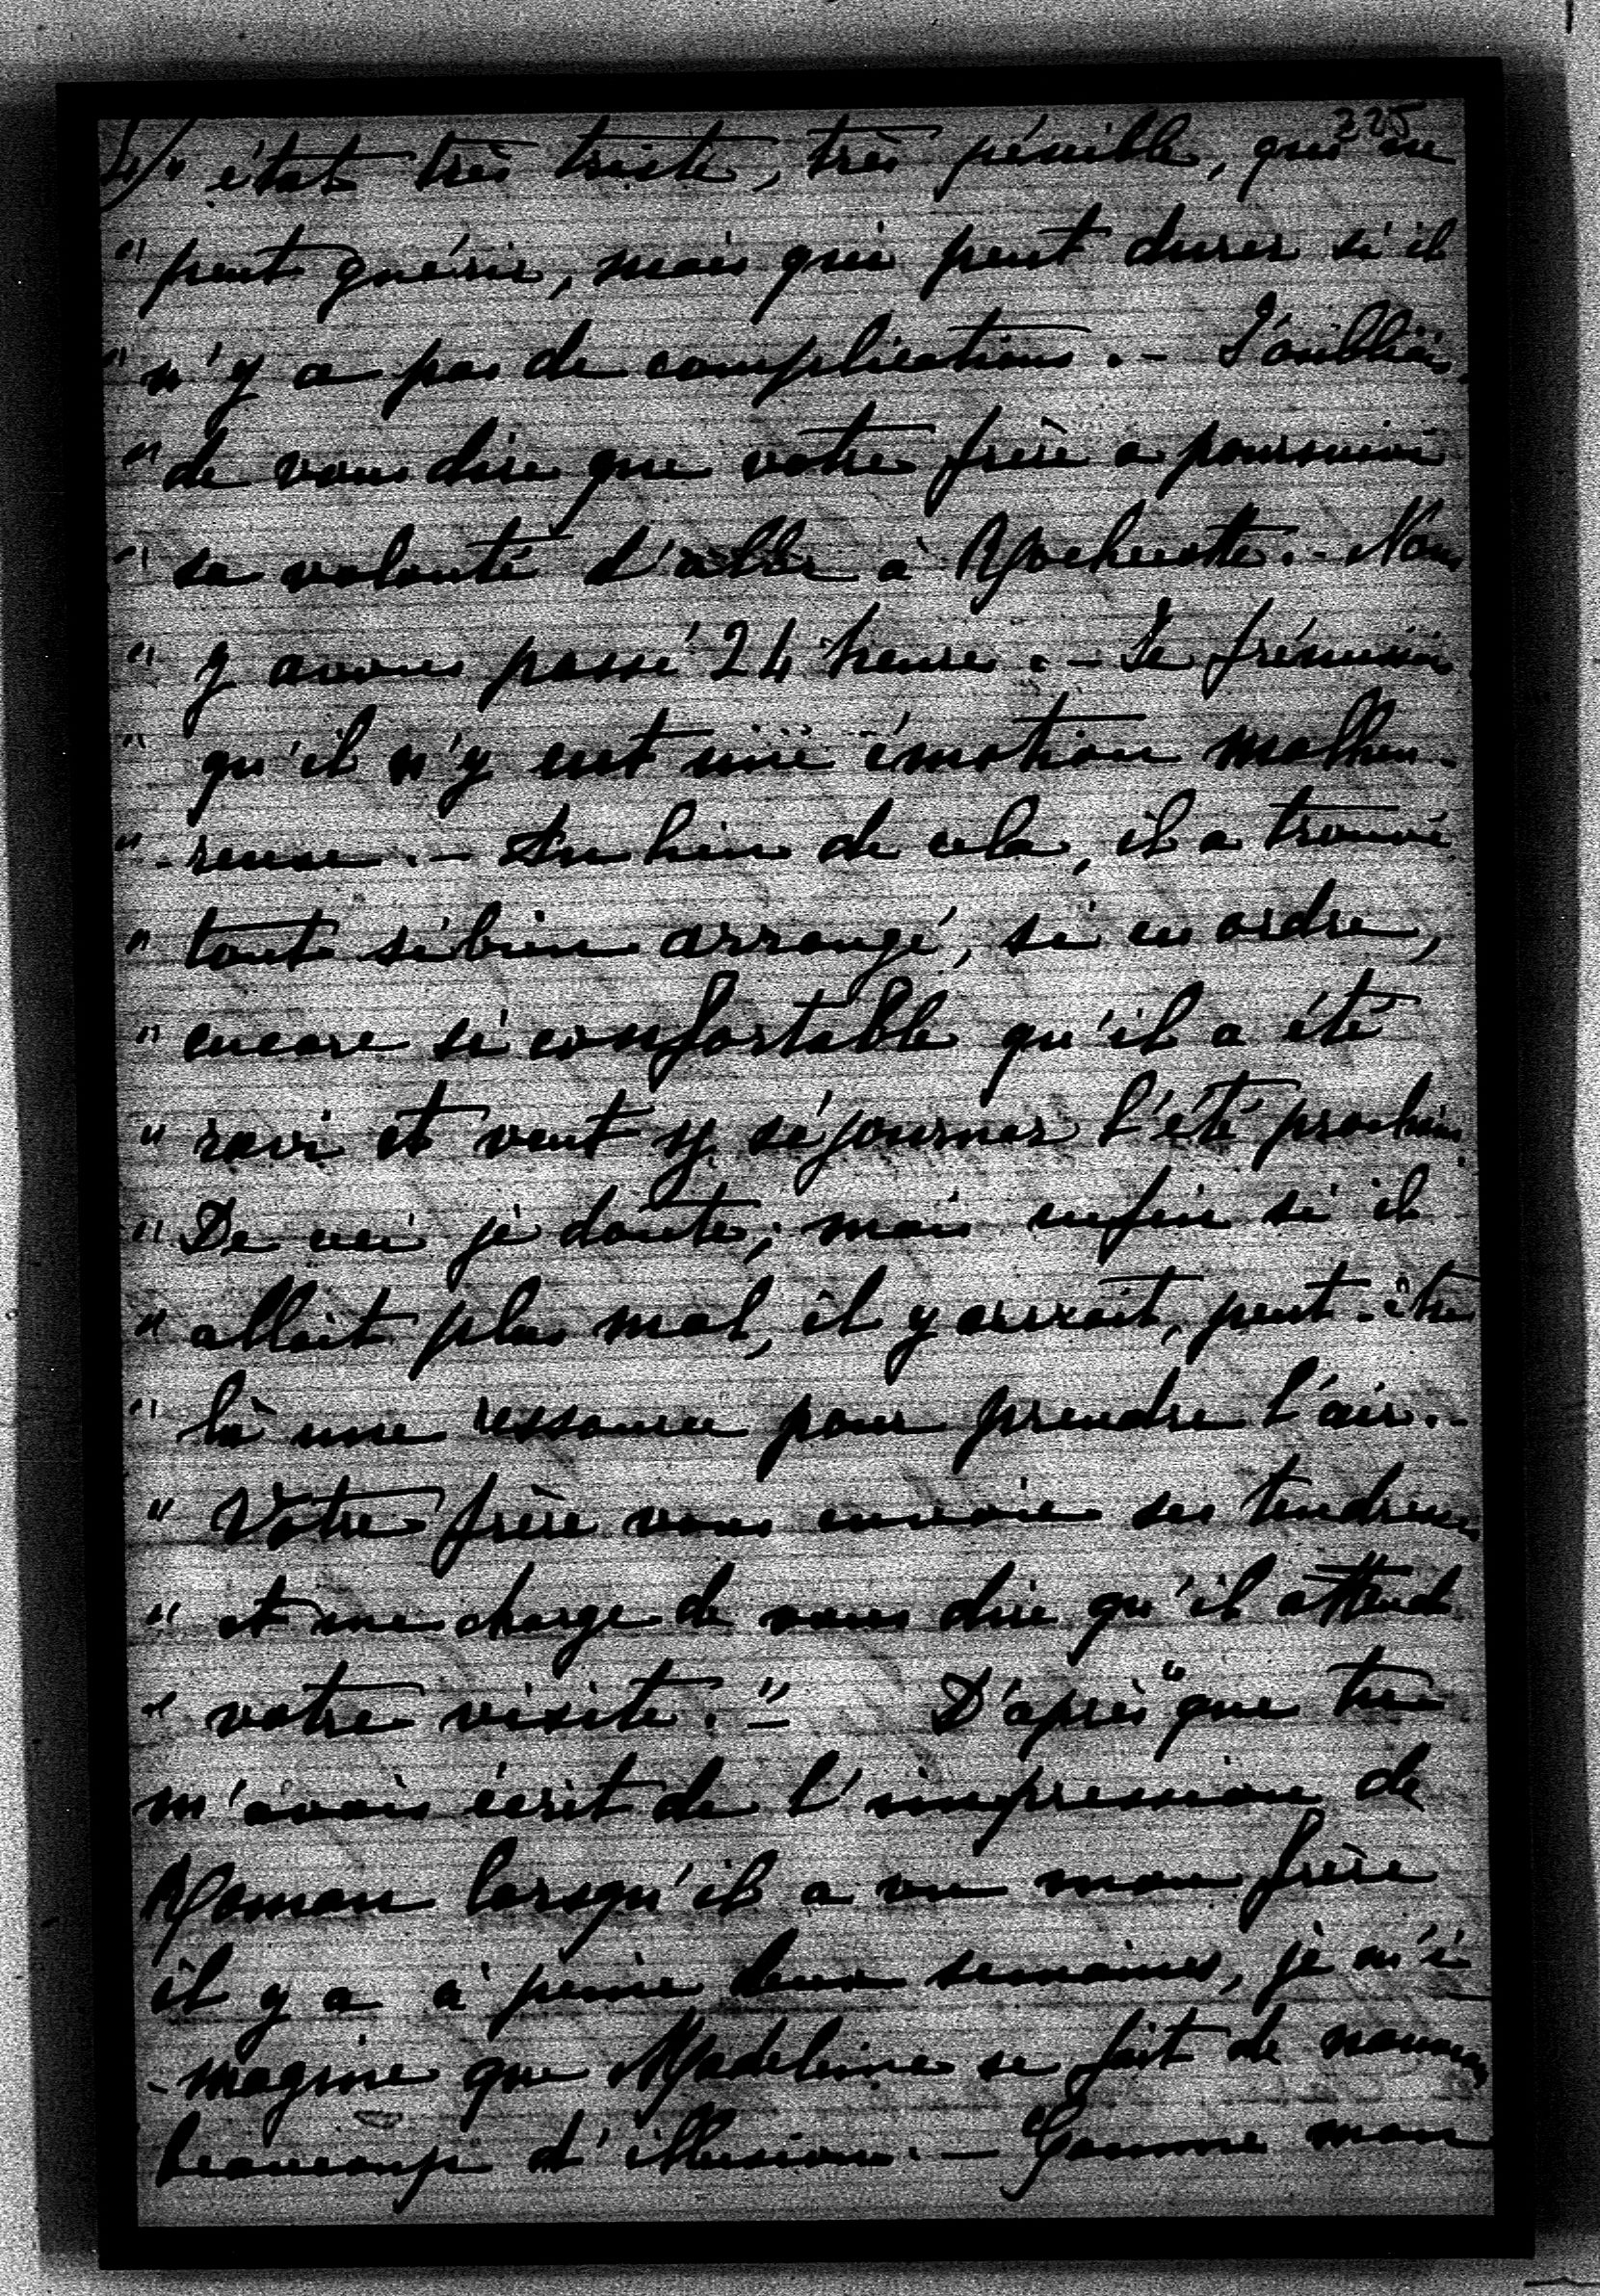 225
4/ " état très triste, très pénible, qui ne
" peut guérir, mais qui peut durer si il
" n'y a pas de complications. - J'oubliais
" de vous dire que votre frère a poursuivi
" sa volonté d'aller à . - Nous
" y avons passé 24 heures. - Je frémissais
" qu'il n'y eut une émotion malheu-
" -reuse. - Au lieu de cela, il a trouvé
" tout si bien arrangé, si en ordre,
" encore si confortable qu'il a été
" ravi et veut y séjourner l'été prochain.
" De ceci je doute; mais enfin si il
" allait plus mal, il y aurait, peut-être
" là une ressource pour prendre l'air. -
" Votre frère vous envoie ses tendresses
" et me charge de vous dire qu'il attend
" votre visite. " - D'après que tu
m'avais écrit de l'impression de
Roman lorsqu'il a vu mon frère
il y a à peine deux semaines, je m'i-
-magine que Madeleine se fait de nouveau
beaucoup d'illusions. - Comme mon